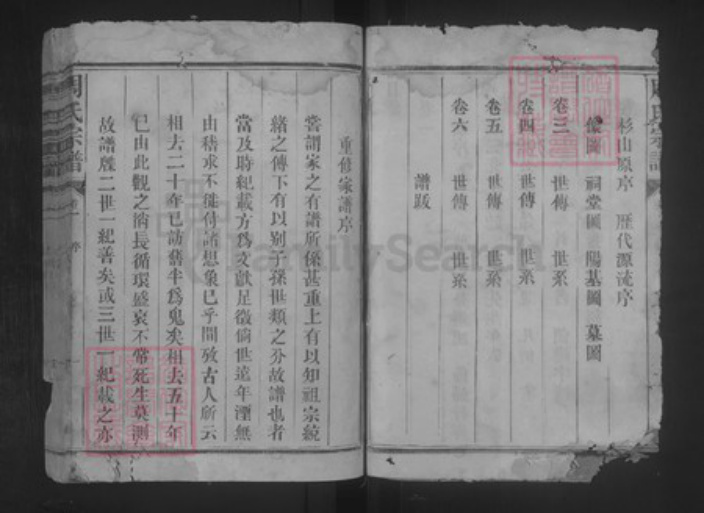 杉山原序 歷代源流序
像圖 祠堂圖 陽基圖 墓圖
卷三 世傳 世系
卷四 世傳 世系
卷五 世傳 世系
卷六 世傳 世系
譜跋
重修家譜序
嘗謂家之有譜所係甚重上有以知祖宗統
緒之傳下有以别子孫世類之分故譜也者
當及時紀載方爲文獻足徵倘世遠年湮無
由稽求不徒付諸想象已乎間攷古人所云
相去二十年已訪舊半爲鬼矣相去五十年
已由此觀之消長循環盛衰不常死生莫測
故譜牒二世一紀善矣或三世一紀載之亦
周氏宗譜
序
FamilySearch